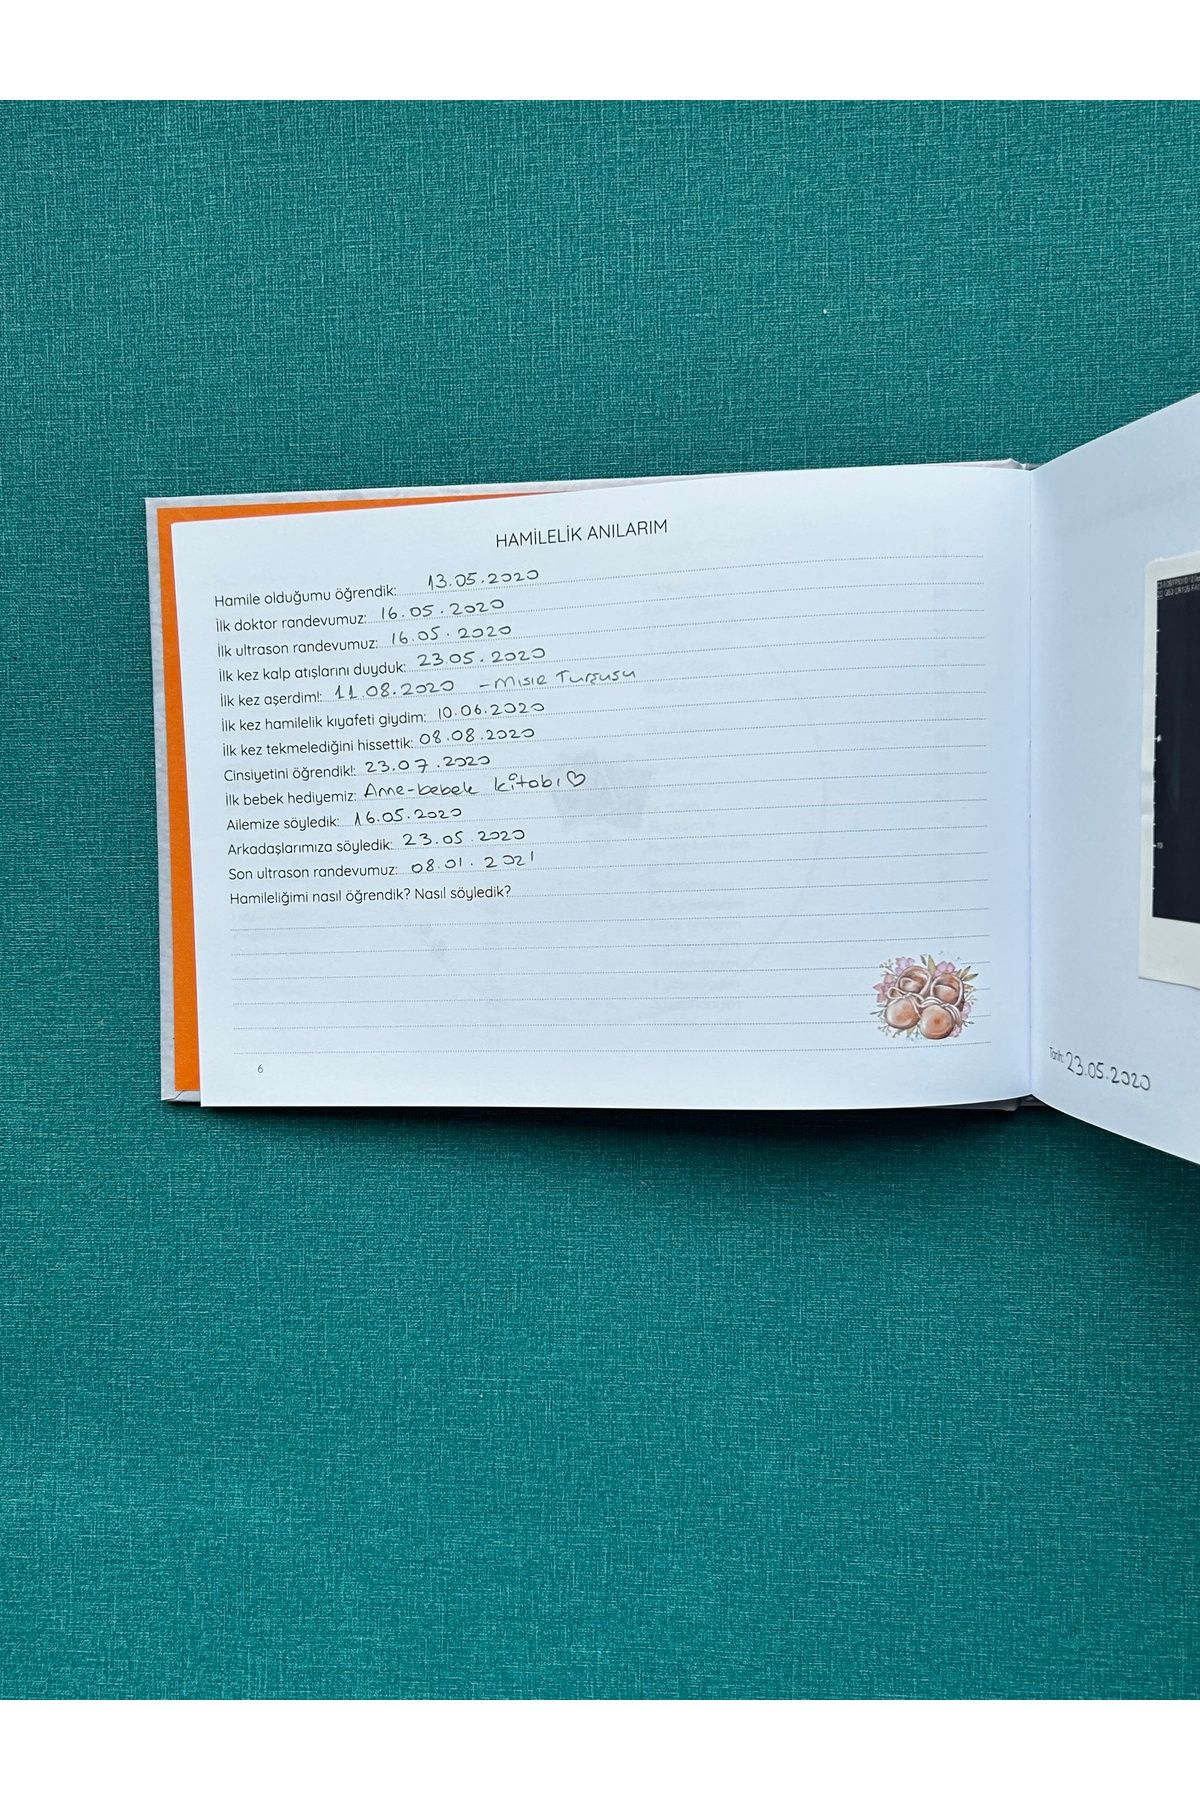 HAMİLELİK ANILARIM
Hamile olduğumu öğrendik: 13.05.2020
İlk doktor randevumuz: 16.05.2020
İlk ultrason randevumuz: 16.05.2020
İlk kez kalp atışlarını duyduk: 23.05.2020
İlk kez aşerdim!: 11.08.2020 - Mısır Turşusu
İlk kez hamilelik kıyafeti giydim: 10.06.2020
İlk kez tekmelediğini hissettik: 08.08.2020
Cinsiyetini öğrendik!: 23.07.2020
İlk bebek hediyemiz: Anne-bebek kitabı♡
Ailemize söyledik: 16.05.2020
Arkadaşlarımıza söyledik: 23.05.2020
Son ultrason randevumuz: 08.01.2021
Hamileliğimi nasıl öğrendik? Nasıl söyledik?
6
Tarih: 23.05.2020